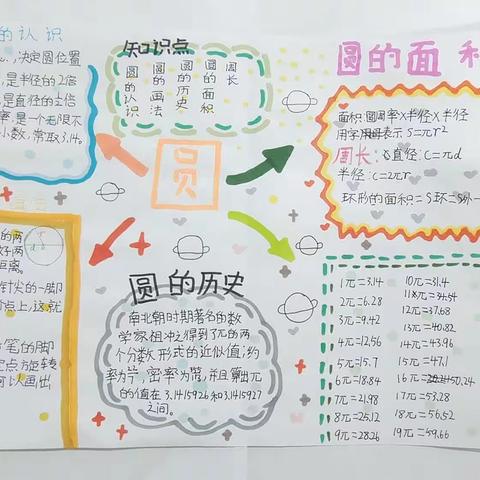 的认识
决定圆位置
是半径的2倍
是直径的½倍
率,是一个无限不
小数,常取3.14。
知识点
圆的认识
圆的画法
圆的历史
圆的面积
周长
圆的面积
面积:圆周率×半径×半径
用字母表示S=πr²
周长:直径:C=πd
半径:C=2πr
环形的面积=S环=S外-
圆
的两
好两
距离。
针尖的一脚
点上,这就
笔的脚
定点旋转
可以画出
圆的历史
南北朝时期著名的数
学家祖冲之得到了π的两
个分数形式的近似值:约
率为 ,密率为 ,并且算出π
的值在3.1415926和3.1415927
之间。
1π=3.14
2π=6.28
3π=9.42
4π=12.56
5π=15.7
6π=18.84
7π=21.98
8π=25.12
9π=28.26
10π=31.4
11π=34.54
12π=37.68
13π=40.82
14π=43.96
15π=47.1
16π=50.24
17π=53.28
18π=56.52
19π=59.66